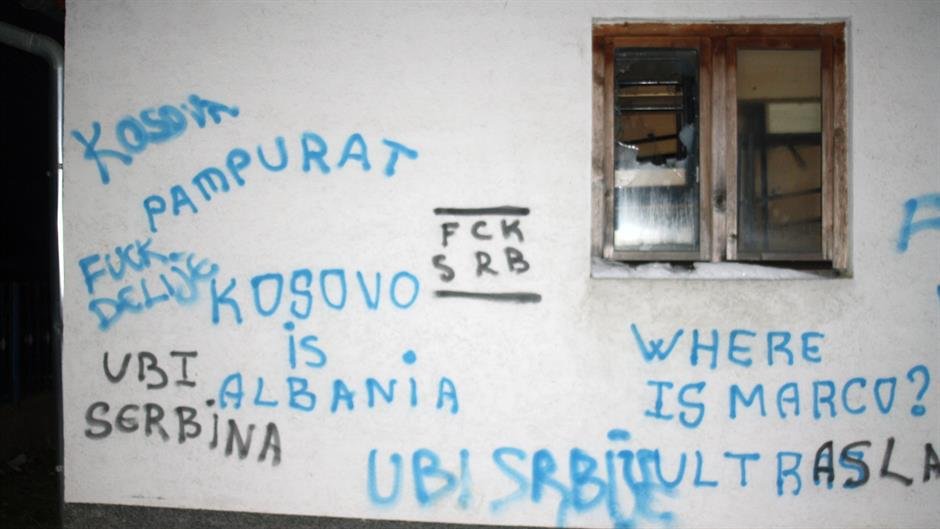 KOSOVA
PAMPURAT
FUCK
DELIJE
FCK
SRB
KOSOVO
iS
ALBANIA
UBI
SERBiNA
WHERE
IS MARCO?
UBI SRBIJE
ULTRASLA